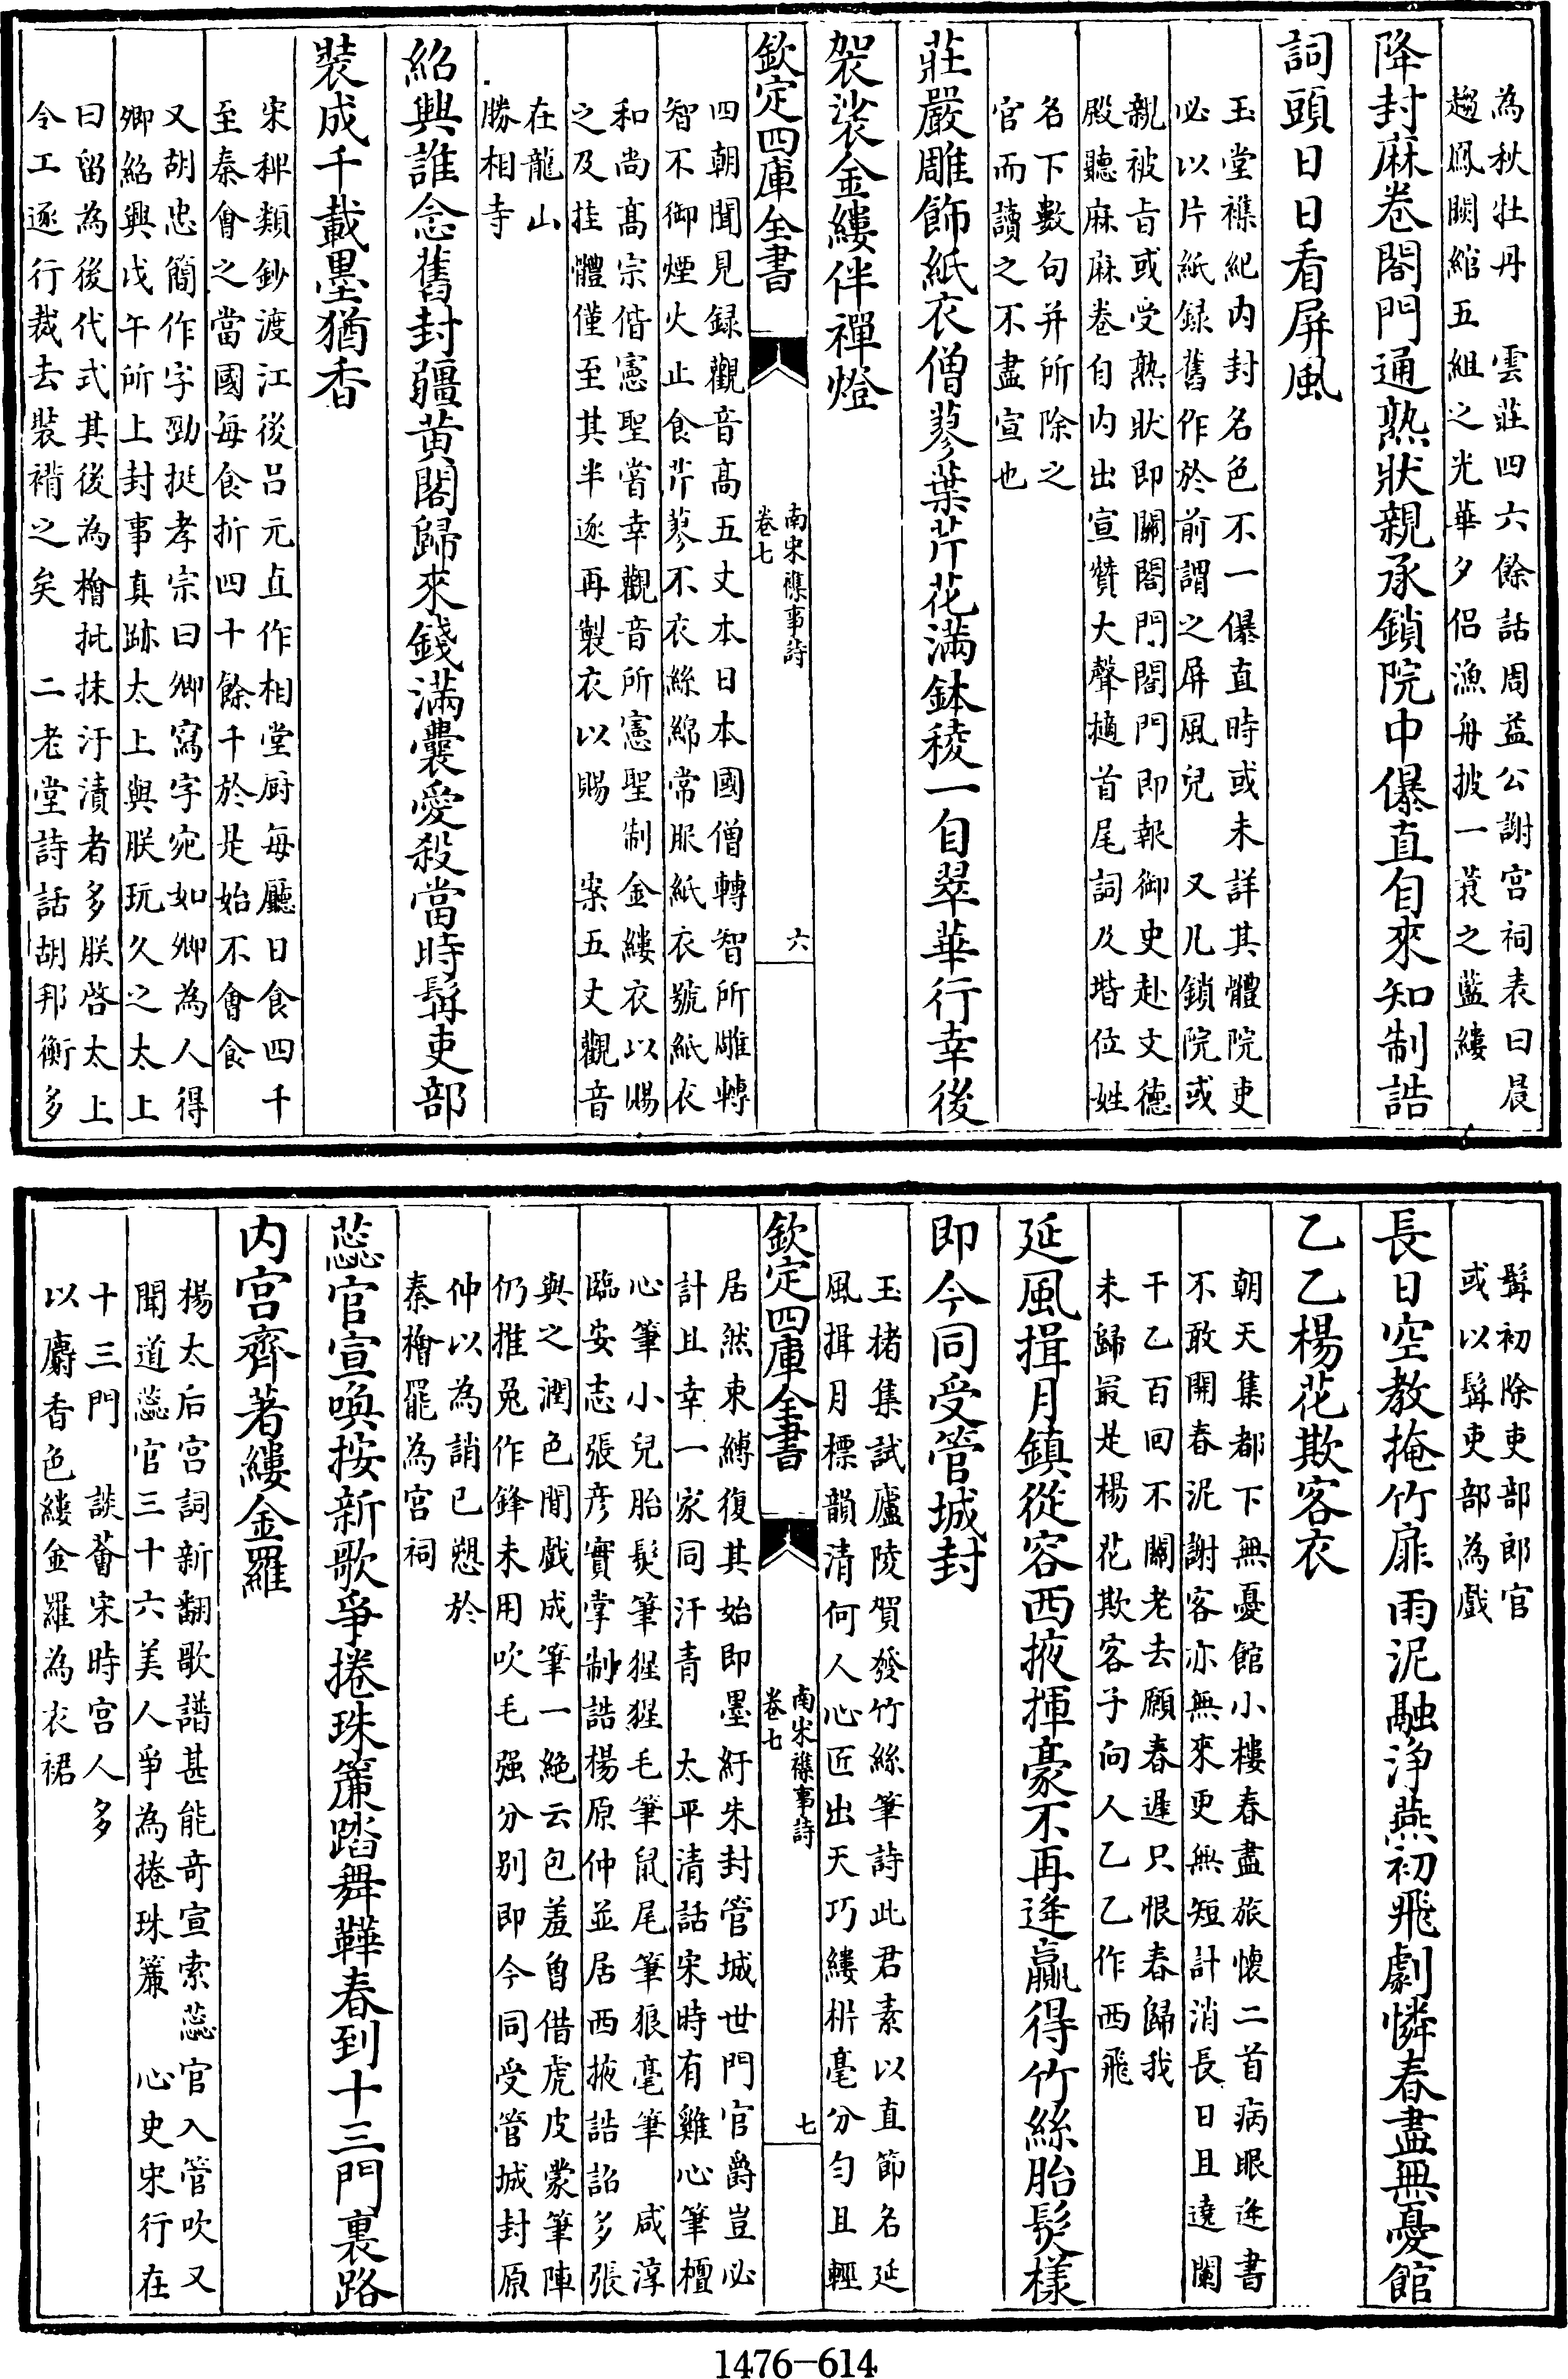 為秋牡丹　雲莊四六餘話周益公謝宫祠表曰晨
趨鳳闕綰五組之光華夕侣漁舟披一蓑之藍縷
降封麻卷閤門通熟狀親承鎖院中儤直自來知制誥
詞頭日日看屏風
玉堂襍紀内封名色不一儤直時或未詳其體院吏
必以片紙録舊作於前謂之屏風兒　又凡鎖院或
親被㫖或受熟狀即關閤門閤門即報御史赴文德
殿聽麻麻卷自内出宣贊大聲摘首尾詞及堦位姓
名下數句并所除之
官而讀之不盡宣也
莊嚴雕飾紙衣僧蓼葉芹花滿鉢稜一自翠華行幸後
袈裟金縷伴禪燈
欽定四庫全書
南宋襍事詩
卷七
六
四朝聞見録觀音髙五丈本日本國僧轉智所雕轉
智不御煙火止食芹蓼不衣絲綿常服紙衣號紙衣
和尚髙宗偕憲聖嘗幸觀音所憲聖制金縷衣以賜
之及挂體僅至其半逐再製衣以賜　案五丈觀音
在龍山
勝相寺
紹興誰念舊封疆黄閣歸來錢滿囊愛殺當時髯吏部
裝成千載墨猶香
宋稗類鈔渡江後吕元直作相堂厨每廳日食四千
至秦會之當國每食折四十餘千於是始不會食
又胡忠簡作字勁挺孝宗曰卿寫字宛如卿為人得
卿紹興戊午所上封事真跡太上與朕玩久之太上
曰留為後代式其後為檜批抹汙漬者多朕啓太上
令工逐行裁去裝褙之矣　二老堂詩話胡邦衡多
髯初除吏部郎官
或以髯吏部為戲
長日空教掩竹扉雨泥融浄燕初飛劇憐春盡無憂館
乙乙楊花欺客衣
朝天集都下無憂館小樓春盡旅懐二首病眼逢書
不敢開春泥謝客亦無來更無短計消長日且遶闌
干乙百回不關老去願春遲只恨春歸我
未歸最是楊花欺客子向人乙乙作西飛
延風揖月鎮從容西掖揮豪不再逢贏得竹絲胎髪様
即今同受管城封
玉楮集試廬陵賀發竹絲筆詩此君素以直節名延
風揖月標韻清何人心匠出天巧縷析毫分匀且輕
欽定四庫全書
南宋襍事詩
卷七
七
居然束縛復其始即墨紆朱封管城世門官爵豈必
計且幸一家同汗青　太平清話宋時有雞心筆檀
心筆小兒胎髪筆猩猩毛筆鼠尾筆狼毫筆　咸淳
臨安志張彦實掌制誥楊原仲並居西掖誥詔多張
與之潤色間戯成筆一絶云包羞曾借虎皮蒙筆陣
仍推兔作鋒未用吹毛强分别即今同受管城封原
仲以為誚己愬於
秦檜罷為宫祠
蕊官宣喚按新歌爭捲珠簾踏舞鞾春到十三門裏路
内宫齊著縷金羅
楊太后宫詞新翻歌譜甚能奇宣索蕊官入管吹又
聞道蕊官三十六美人爭為捲珠簾　心史宋行在
十三門　談薈宋時宫人多
以麝香色縷金羅為衣裙
1476-614